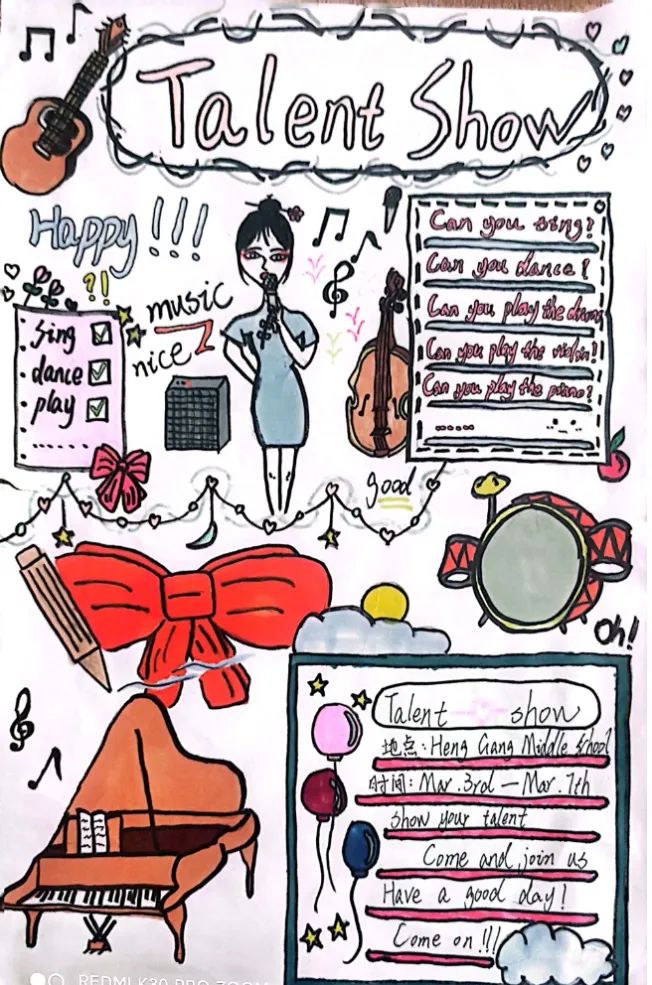 Talent Show
Happy!!!
?!
music
nice
sing
dance
play
......
Can you sing?
Can you dance?
Can you play the drum
Can you play the violin!
Can you play the piano?
......
good
Oh!
Talent show
地点: Heng Gang Middle School
时间: Mar.3rd — Mar.7th
Show your talent
Come and join us
Have a good day!
Come on!!!
REDMI K30 PRO ZOOM